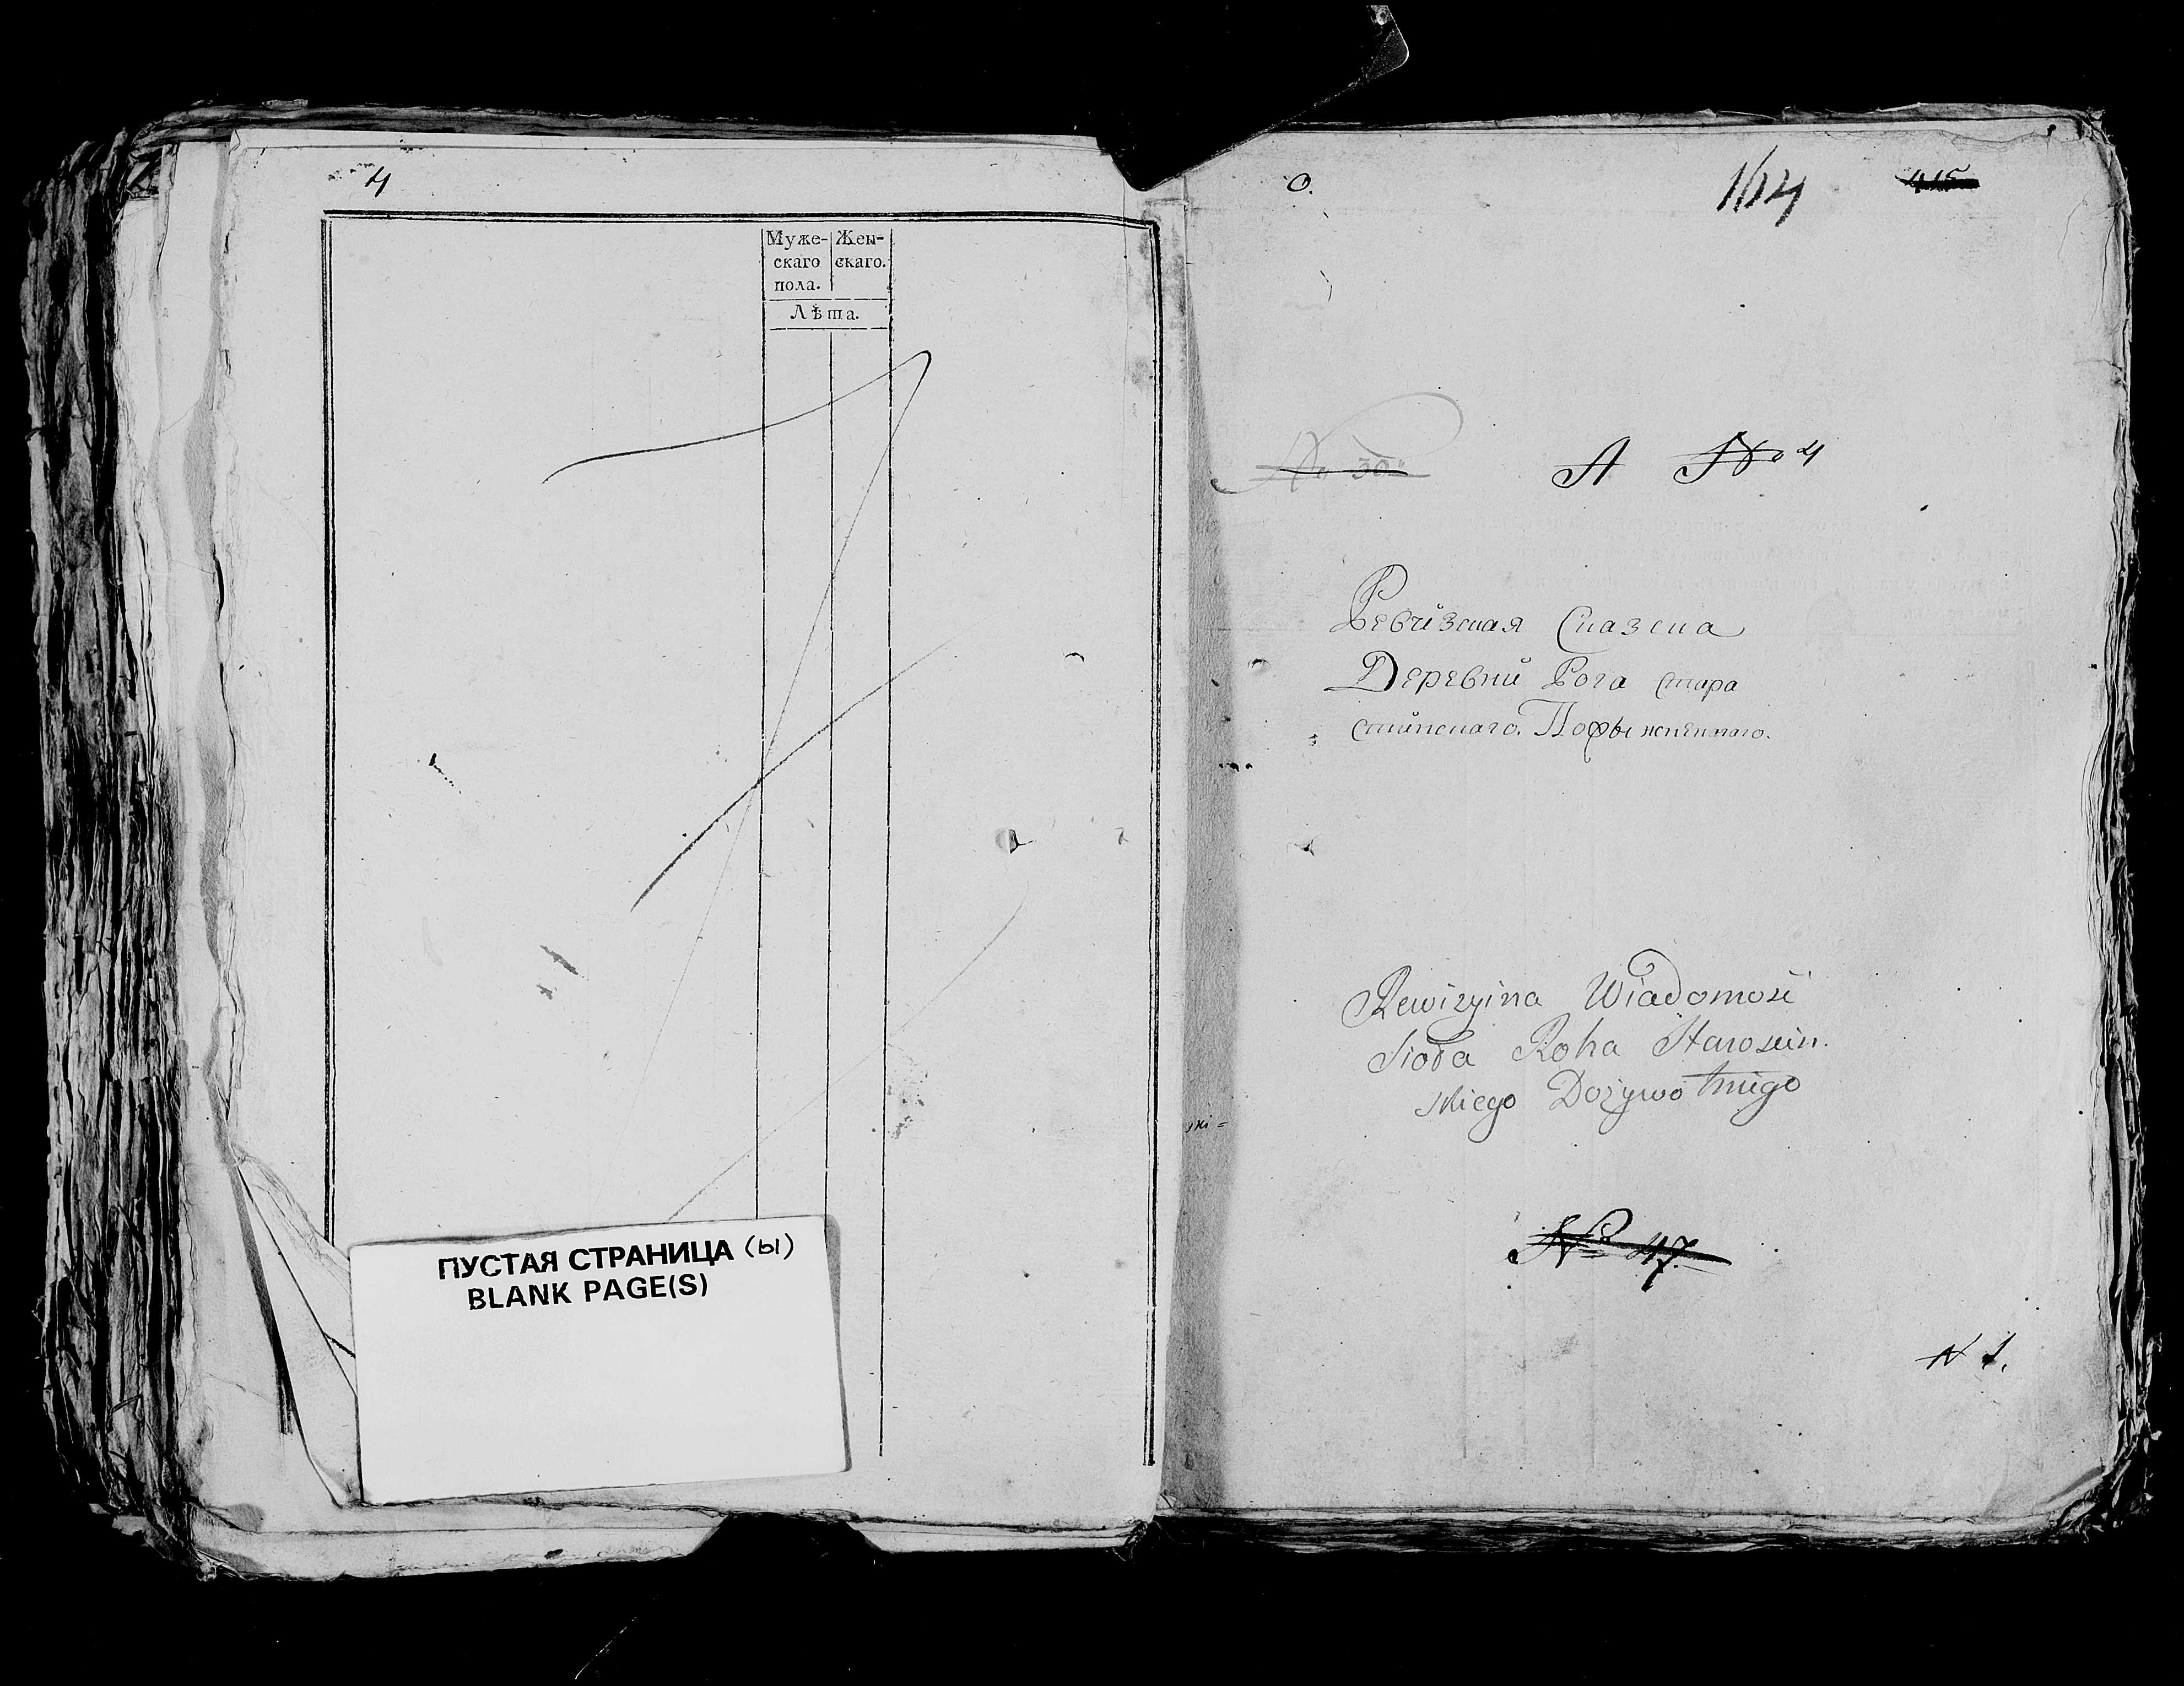 4
Муже-
скаго
пола.
Жен-
скаго.
Лѣта.
ПУСТАЯ СТРАНИЦА (ы)
BLANK PAGE(S)
О.
415
№ 30
А № 4
Ревизская Сказка
Деревни Рога стара
стинскаго.
Rewizyina Wiadomość
Sioła Roha Starościn.
skiego Dożywotniego
№ 47.
N 1.